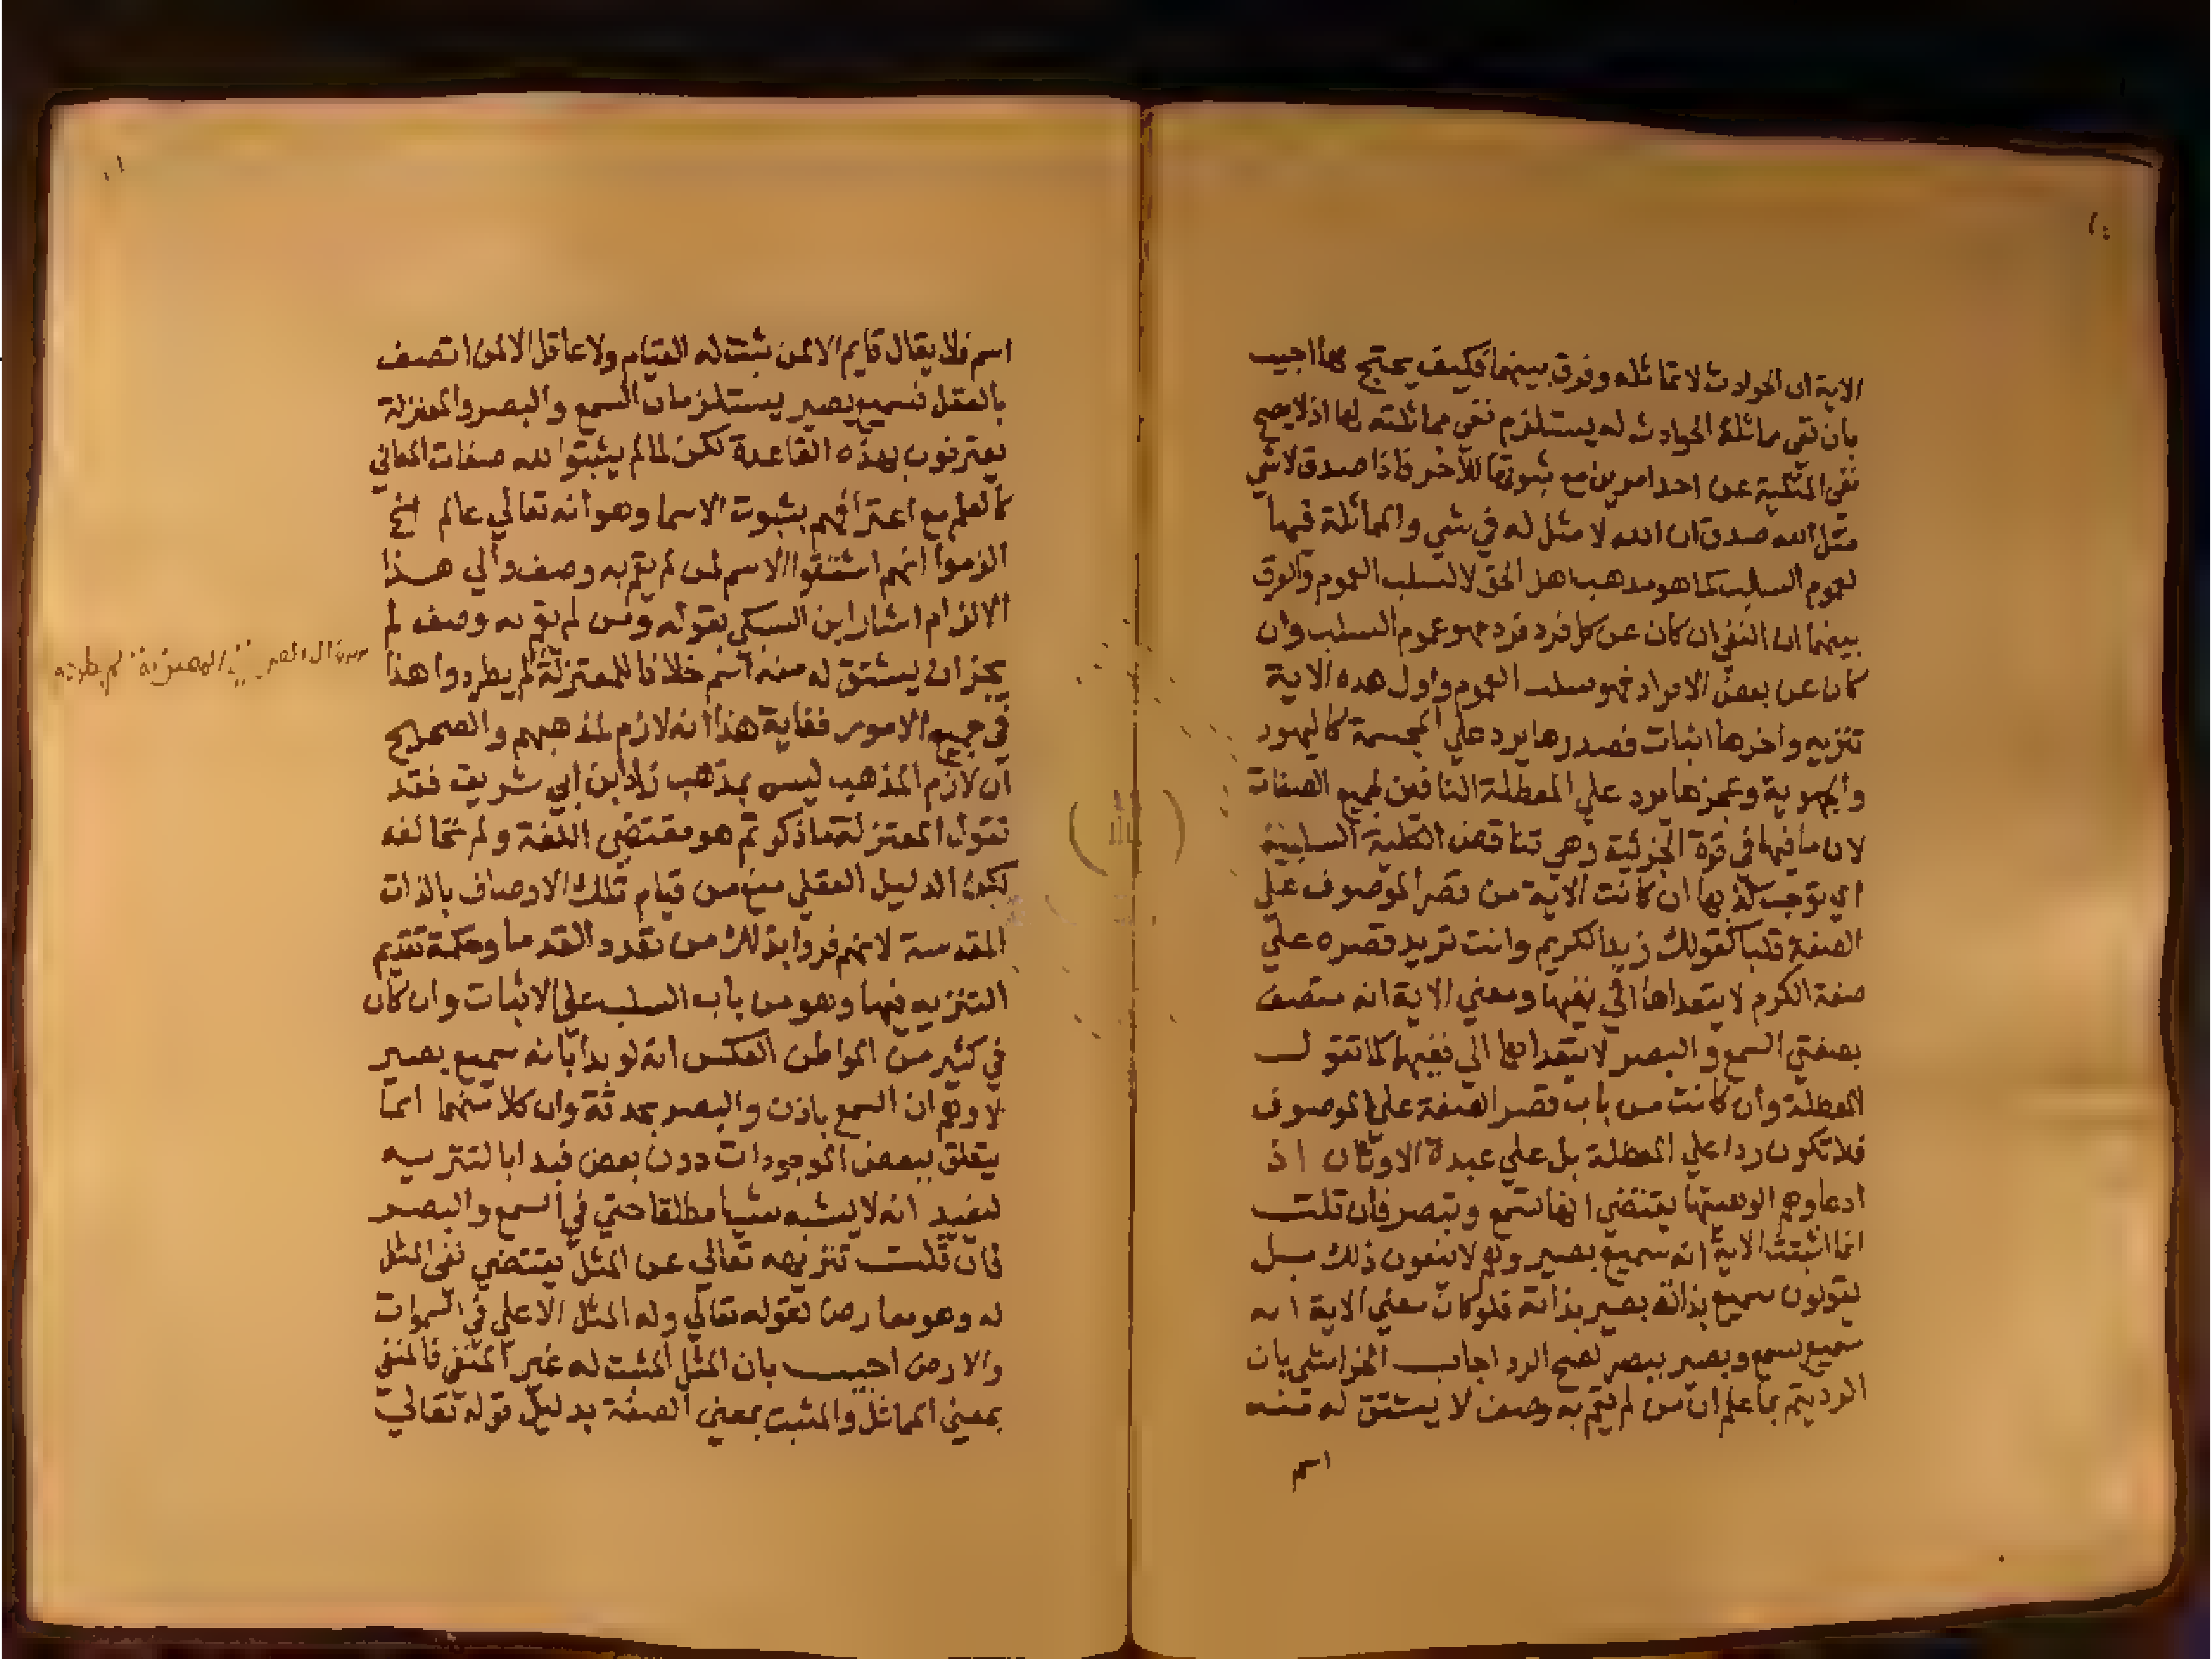 الاية ان الحوادث لا تماثله وفرق بينهما فكيف يحتج بها اجيب
بان نفي مماثلة الحوادث له يستلزم نفي مماثلته لها اذ لا يصح
نفي المثلية عن احد امرين مع ثبوتها للآخر فاذا صدق لا شي
مثل الله صدق ان الله لا مثل له في شي والمماثلة فيها
لعموم السلب كما هو مذهب اهل الحق لا لسلب العموم والفرق
بينهما ان النفي ان كان عن كل فرد فرد فهو عموم السلب وان
كان عن بعض الافراد فهو سلب العموم واول هده الاية
تنزيه واخرها اثبات فصدرها يرد علي المجسمة كاليهود
والجهوية وعجزها يرد علي المعطلة النافين لجميع الصفات
لان ما فيها في قوة الجزئية وهي تناقض الكلية السلبية
اي توجب كذبها ان كانت الاية من قصر الموصوف علي
الصفة قلبا كقولك زيد الكريم وانت تريد قصره علي
صفة الكرم لا يتعداها الي نفيها ومعني الاية انه متصف
بصفتي السمع والبصر لا يتعداهما الي نفيهما كما تقول
المعطلة وان كانت من باب قصر الصفة علي الموصوف
فلا تكون ردا علي المعطلة بل علي عبدة الاوثان اذ
ادعاوهم الوهيتها يقتضي انها تسمع وتبصر فان قلت
انما اثبتت الاية انه سميع بصير وهم لا ينفون ذلك بل
يقولون سميع بذاته بصير بذاته فلو كان معني الاية انه
سميع بسمع وبصير ببصر لصح الرد اجاب الخراشي بان
الرد يتم بما علم ان من لم يقم به وصف لا يشتق له منه
اسم
اسم فلا يقال قايم الا لمن ثبت له القيام ولا عاقل الا لمن اتصف
بالعقل فسميع بصير يستلزمان السمع والبصر والمعتزلة
يعترفون بهذه القاعدة لكن لما لم يثبتوا لله صفات المعاني
كالعلم مع اعترافهم بثبوت الاسما وهو انه تعالي عالم الخ
الزموا انهم اشتقوا الاسم لمن لم يقم به وصف والي هذا
الالزام اشار ابن السبكي بقوله ومن لم يقم به وصف لم
يجز ان يشتق له منه اسم خلافا للمعتزلة لم يطردوا هذا
في جميع الامور فغاية هذا انه لازم لمذهبهم والصحيح
ان لازم المذهب ليس بمذهب زاد ابن ابي شريف فقد
تقول المعتزلة ما ذكرتم هو مقتضي اللغة ولم نخالفه
لكن الدليل العقلي منع من قيام تلك الاوصاف بالذات
المقدسة لانهم فروا بذلك من تعدد القدما وحكمة تقديم
التنزيه فيها وهو من باب السلب علي الاثبات وان كان
في كثير من المواطن العكس انه لو بدا بانه سميع بصير
لاوهم ان السمع باذن والبصر بحدقة وان كلا منهما انما
يتعلق ببعض الموجودات دون بعض فبدا بالتنزيه
ليفيد انه لا يشبه شيا مطلقا حتي في السمع والبصر
فان قلت تنزيهه تعالي عن المثل يقتضي نفي المثل
له وهو معارض لقوله تعالي وله المثل الاعلي في السموات
والارض اجيب بان المثل المثبت له غير المنفي فالمنفي
بمعني المماثل والمثبت بمعني الصفة بدليل قوله تعالي